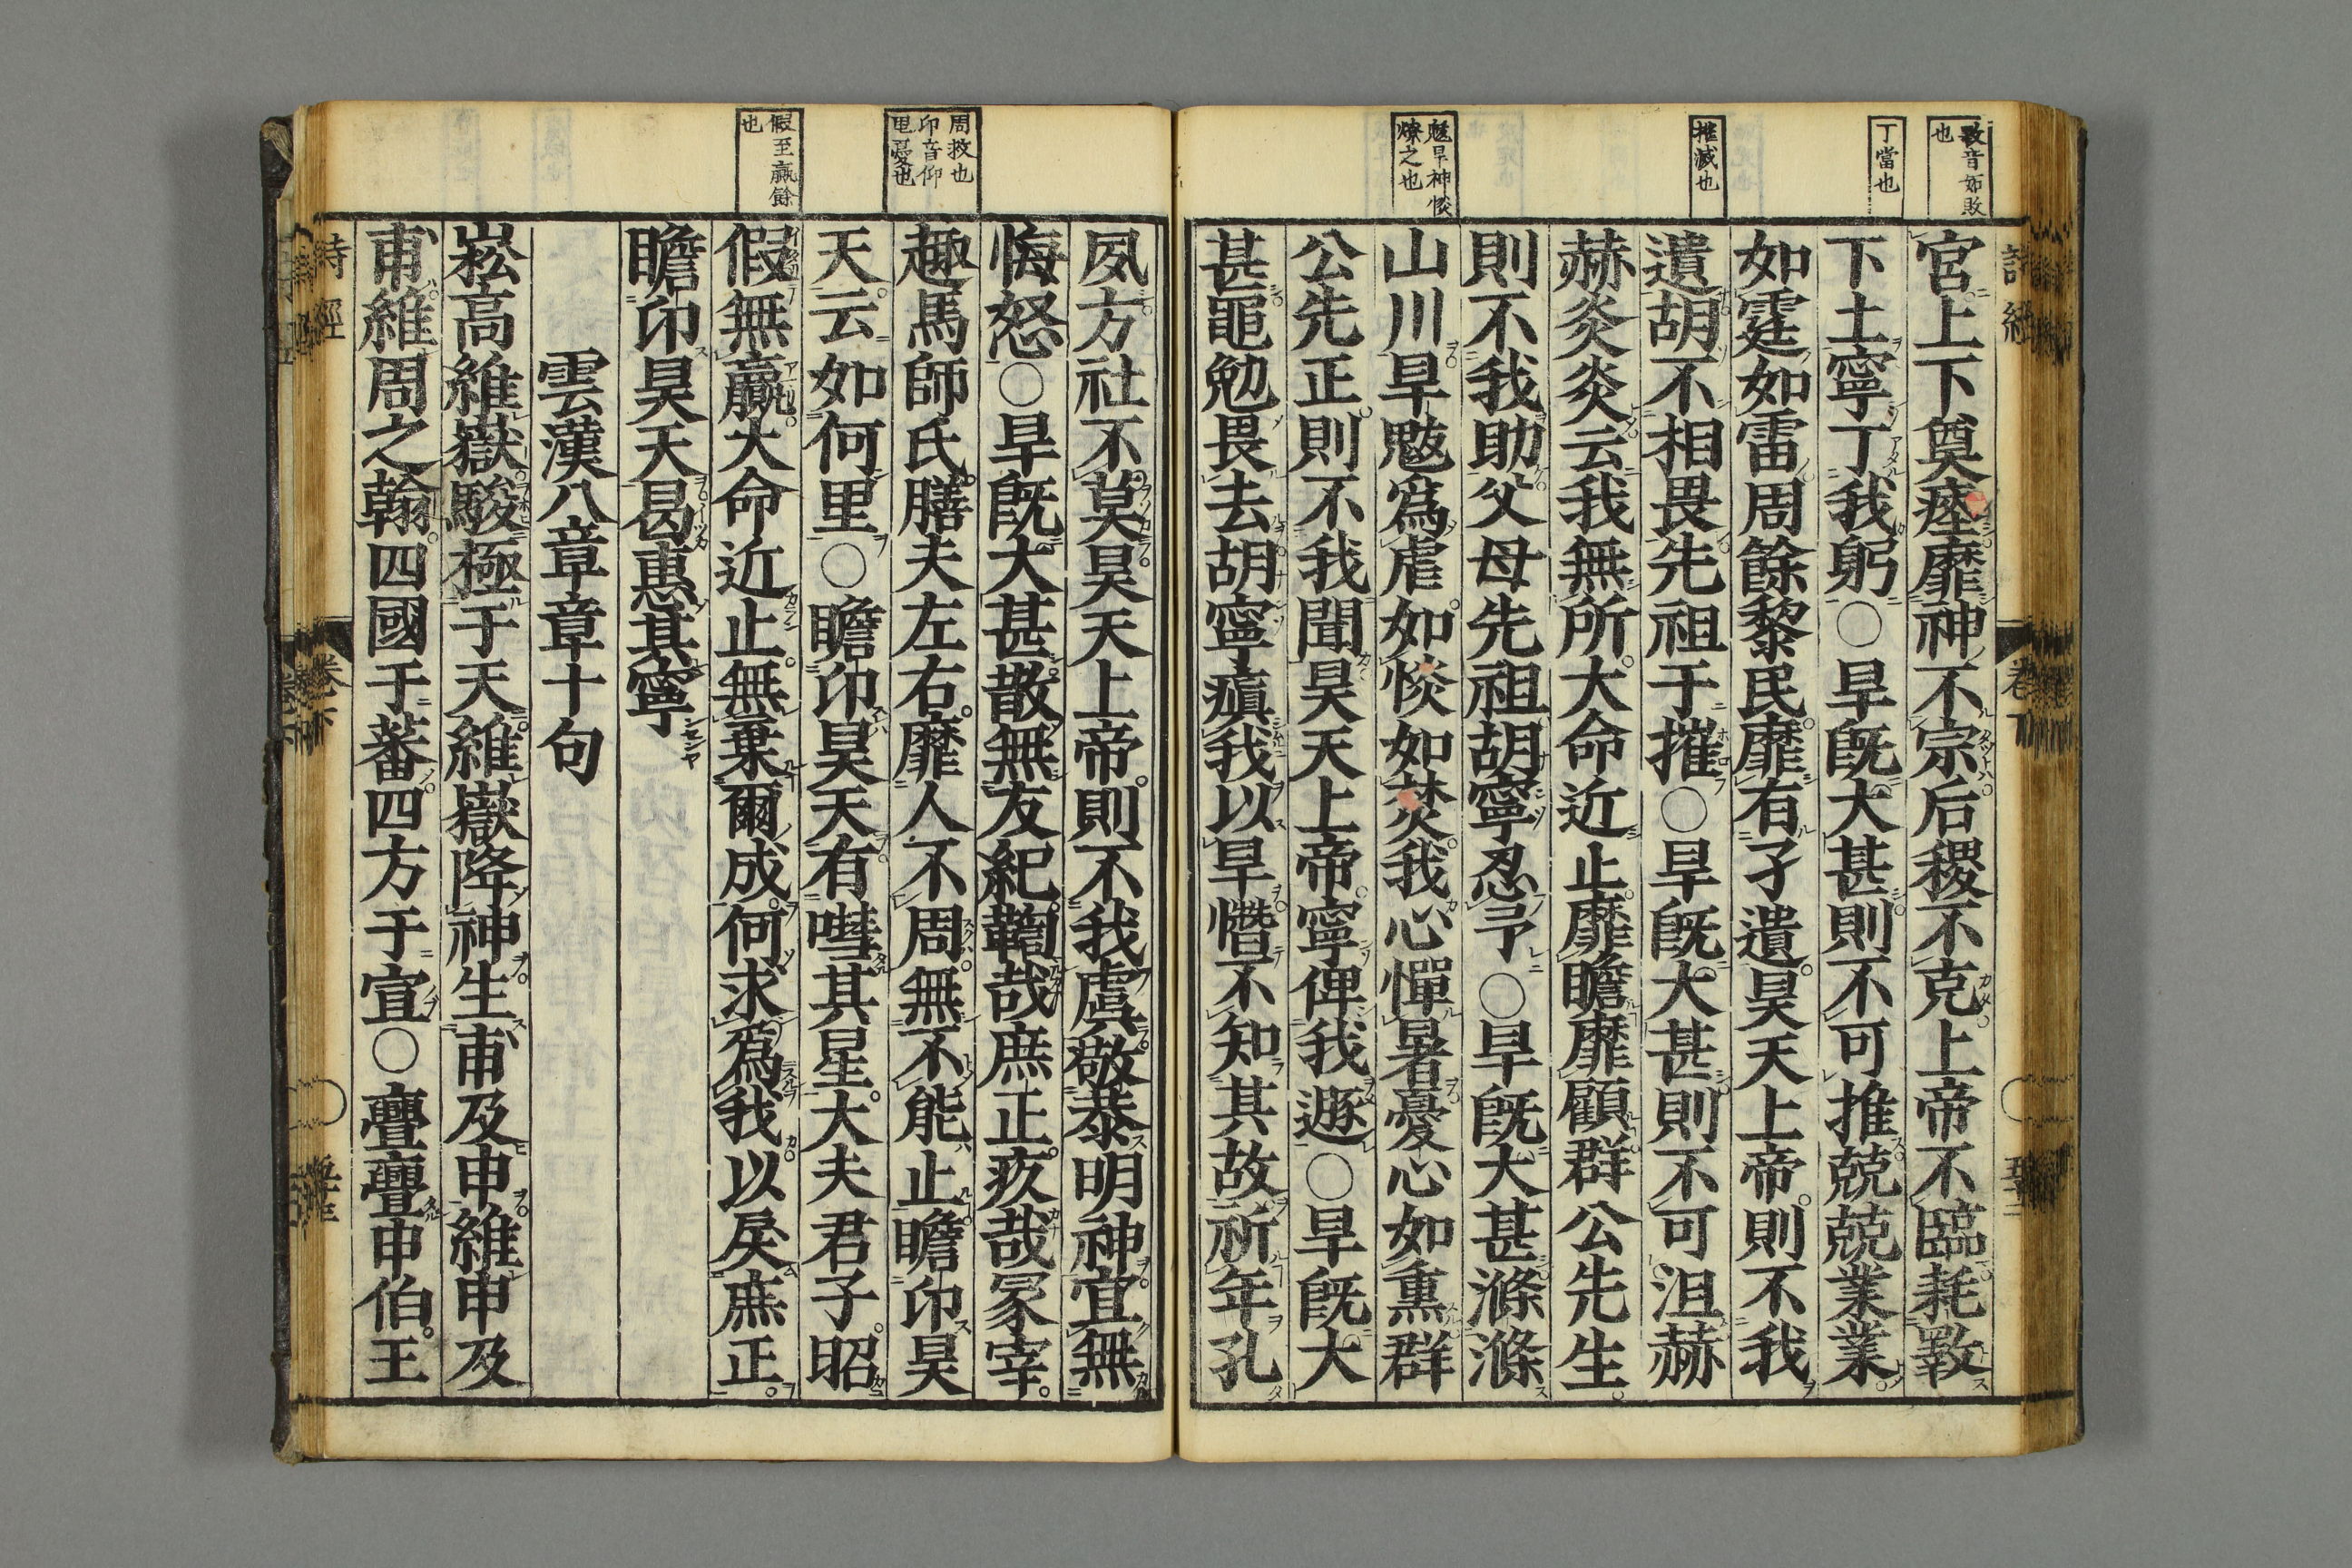 斁音妬敗
也
丁當也
摧滅也
魃旱神惔
燎之也
宮上下奠瘞靡神不宗后稷不克上帝不臨耗斁
下土寧丁我躬○旱旣大甚則不可推兢兢業業
如霆如雷周餘黎民靡有孑遺昊天上帝則不我
遺胡不相畏先祖于摧○旱旣大甚則不可沮赫
赫炎炎云我無所大命近止靡瞻靡顧群公先生
則不我助父母先祖胡寧忍予○旱旣大甚滌滌
山川旱魃爲虐如惔如焚我心憚暑憂心如熏群
公先正則不我聞昊天上帝寧俾我遯○旱旣大
甚黽勉畏去胡寧瘨我以旱憯不知其故祈年孔
周救也
卬音仰
里憂也
假至贏餘
也
夙方社不莫昊天上帝則不我虞敬恭明神宜無
悔怒○旱旣大甚散無友紀鞫哉庶正疚哉冢宰
趣馬師氏膳夫左右靡人不周無不能止瞻卬昊
天云如何里○瞻卬昊天有嘒其星大夫君子昭
假無贏大命近止無棄爾成何求爲我以戾庶正
瞻卬昊天曷惠其寧
雲漢八章章十句
崧高維嶽駿極于天維嶽降神生甫及申維申及
甫維周之翰四國于蕃四方于宣○亹亹申伯王
詩經
卷下